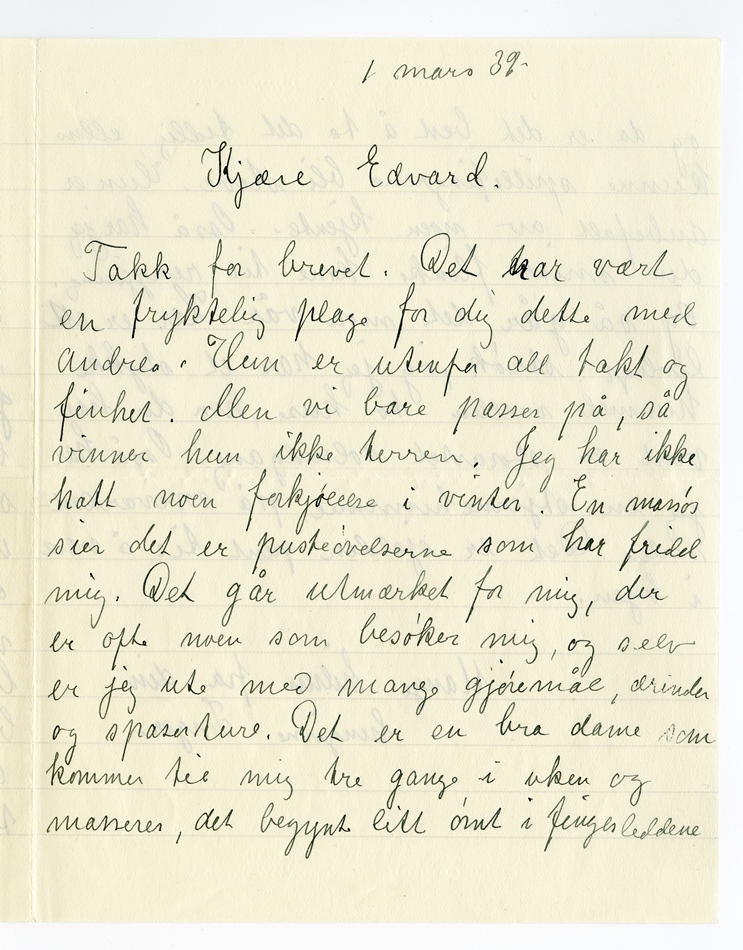 1 mars 39.
Kjære Edvard.
Takk for brevet. Det har vært
en fryktelig plage for dig dette med
Andrea. Hun er utenfor all takt og
finhet. Men vi bare passer på, så
vinner hun ikke terren. Jeg har ikke
hatt noen forkjølelse i vinter. En massøs
sier det er pusteøvelserne som har fridd
mig. Det går utmærket for mig, der
er ofte noen som besøker mig, og selv
er jeg ute med mange gjøremål, ærinder
og spaserture. Det er en bra dame som
kommer til mig tre gange i uken og
masserer, det begynte litt ømt i fingerleddene